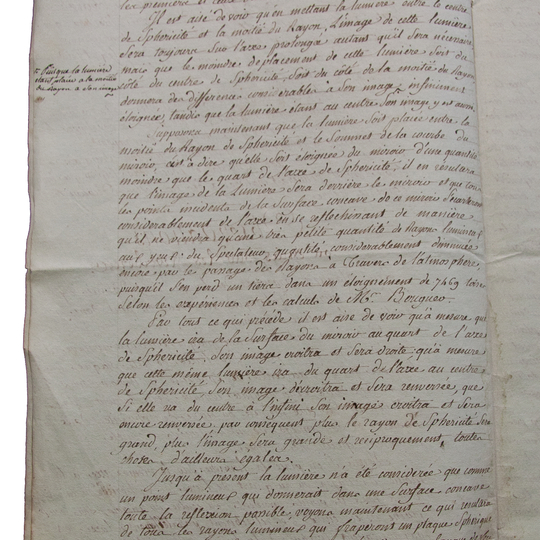 Il est aisé de voir qu'en mettant la lumière entre le centre
de Sphericité et la moitié du Rayon, L'image de cette lumière
Sera toujours Sur l'axe prolongé autant qu'il Sera nécessaire
mais que le moindre déplacement de cette lumière Soit du
côté du centre de Sphericité Soit du côté de la moitié du Rayon
donnera des différences considerables à Son image infiniment
éloignée, tandis que la lumière étant au centre Son image y est aussi
* Puisque la lumiere
étant placée à la moitié
du Rayon a Son image
Supposons maintenant que la lumière Soit placée entre la
moitié du Rayon de Sphericité et le Sommet de la courbe du
miroir, c'est à dire qu'elle Soit éloignée du miroir d'une quantité
moindre que le quart de l'axe de Sphericité, il en résultera
que l'image de la lumière Sera derrière le miroir et que
les points incidents de la Surface concave de ce miroir
considerablement de l'axe en Se reflechissant de manière
qu'il ne viendra qu'une très petite quantité de Rayons lumineux
aux yeux du Spectateur, quantité considerablement diminuée
encore par le passage des Rayons à Travers de l'atmosphere
puisqu'il S'en perd un tiers dans un éloignement de 7469 toises
Selon les expériences et les calculs de Mr. Bouguer.
Par tout ce qui précède il est aisé de voir qu'à mesure que
la lumière ira de la Surface du miroir au quart de l'axe
de Sphericité, Son image croîtra et Sera droite qu'à mesure
que cette même lumière ira du quart de l'axe au centre
de Sphericité Son image décroîtra et Sera renversée, que
si elle va du centre à l'infini Son image croîtra et Sera
encore renversée par conséquent plus le rayon de Sphericité Sera
grand, plus l'image Sera grande et reciproquement, toutes
choses d'ailleurs égales.
Jusqu'à présent la lumière n'a été considerée que comme
un point lumineux qui donnerait dans une Surface concave
toute la reflexion possible, voyons maintenant ce qui
de tous les rayons lumineux qui fraperont un plaque Spherique